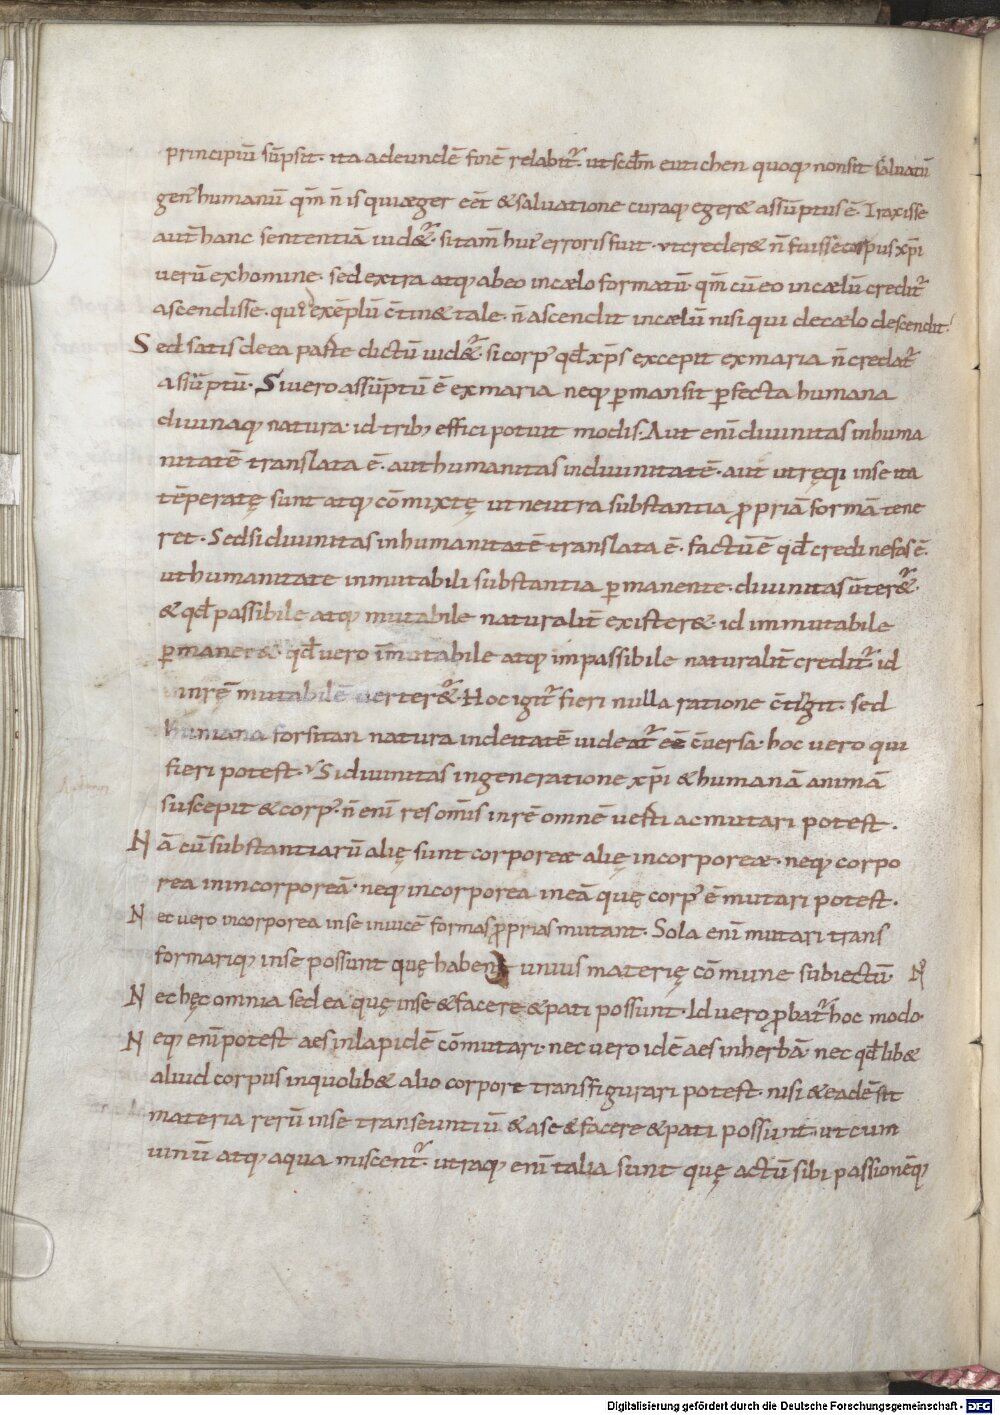 principiū sūpsit· ita adeundē finē relabit᷒· ut scdm̄ eutichen quoq; non sit saluatū
gen᷒ humanū qm̄ n̄ is qui æger eēt & saluatione curaq; eger& assūptus ē· Traxisse
aut̄ hanc sententiā uid&᷒· si tam̄ hui᷒ erroris fuit· ut creder& n̄ fuisse corpus xp̄i
uerū ex homine· sed extra atq; adeo in cælo formatū· qm̄ cū eo in cælū credit᷒
ascendisse· quod exēplū c̄tin& tale· n̄ ascendit in cælū nisi qui de cælo descendit·
Sed satis de ea parte dictū uid&᷒· si corp᷒ qd̄ xp̄s excepit ex maria n̄ credat᷒
assūptū· Si uero assūptū ē ex maria neq; ꝑmansit ꝑfecta humana
diuinaq; natura· id trib; effici potuit modis· Aut eni diuinitas in huma
nitatē translata ē· aut humanitas in diuinitatē· aut utręq; in se ita
tēperatę sunt atq; cōmixtę ut neutra substantia ꝓpriā formā tene
ret· Sed si diuinitas in humanitatē translata ē· factū ē qd̄ credi nefas ē·
ut humanitate inmutabili substantia ꝑmanente· diuinitas ūter&᷒·
& qd̄ passibile atq; mutabile naturalit̄ exister& id immutabile
ꝑmaner&· qd̄ uero īmutabile atq; impassibile naturalit̄ credit᷒ id
in rē mutabilē uerter&᷒· Hoc igit᷒ fieri nulla ratione c̄tigit· sed
humana forsitan natura in deitatē uideat᷒ eē c̄uersa· hoc uero qui
fieri potest· Si diuinitas in generatione xp̄i & humanā animā
suscepit & corp᷒· n̄ eni res om̄is in rē omnē uerti ac mutari potest·
Nā cū substantiarū alię sunt corporeæ alię incorporeæ· neq; corpo
rea in incorporeā· neq; incorporea in eā quę corp᷒ ē mutari potest·
Nec uero incorporea in se inuicē formas ꝓprias mutant· Sola eni mutari trans
formariq; in se possunt quę habent unius materię cōmune subiectū· N
Nec hęc omnia sed ea quę in se & facere & pati possunt· Id uero ꝓbat᷒ hoc modo·
Neq; eni potest aes in lapidē cōmutari· nec uero idē aes in herbā· nec qd̄lib&
aliud corpus in quolib& alio corpore transfigurari potest· nisi & eadē sit
materia rerū in se transeuntiū & a se & facere & pati possunt· ut cum
uinū atq; aqua miscent᷒· utraq; eni talia sunt quę actū sibi passionēq;
Digitalisierung gefördert durch die Deutsche Forschungsgemeinschaft - DFG